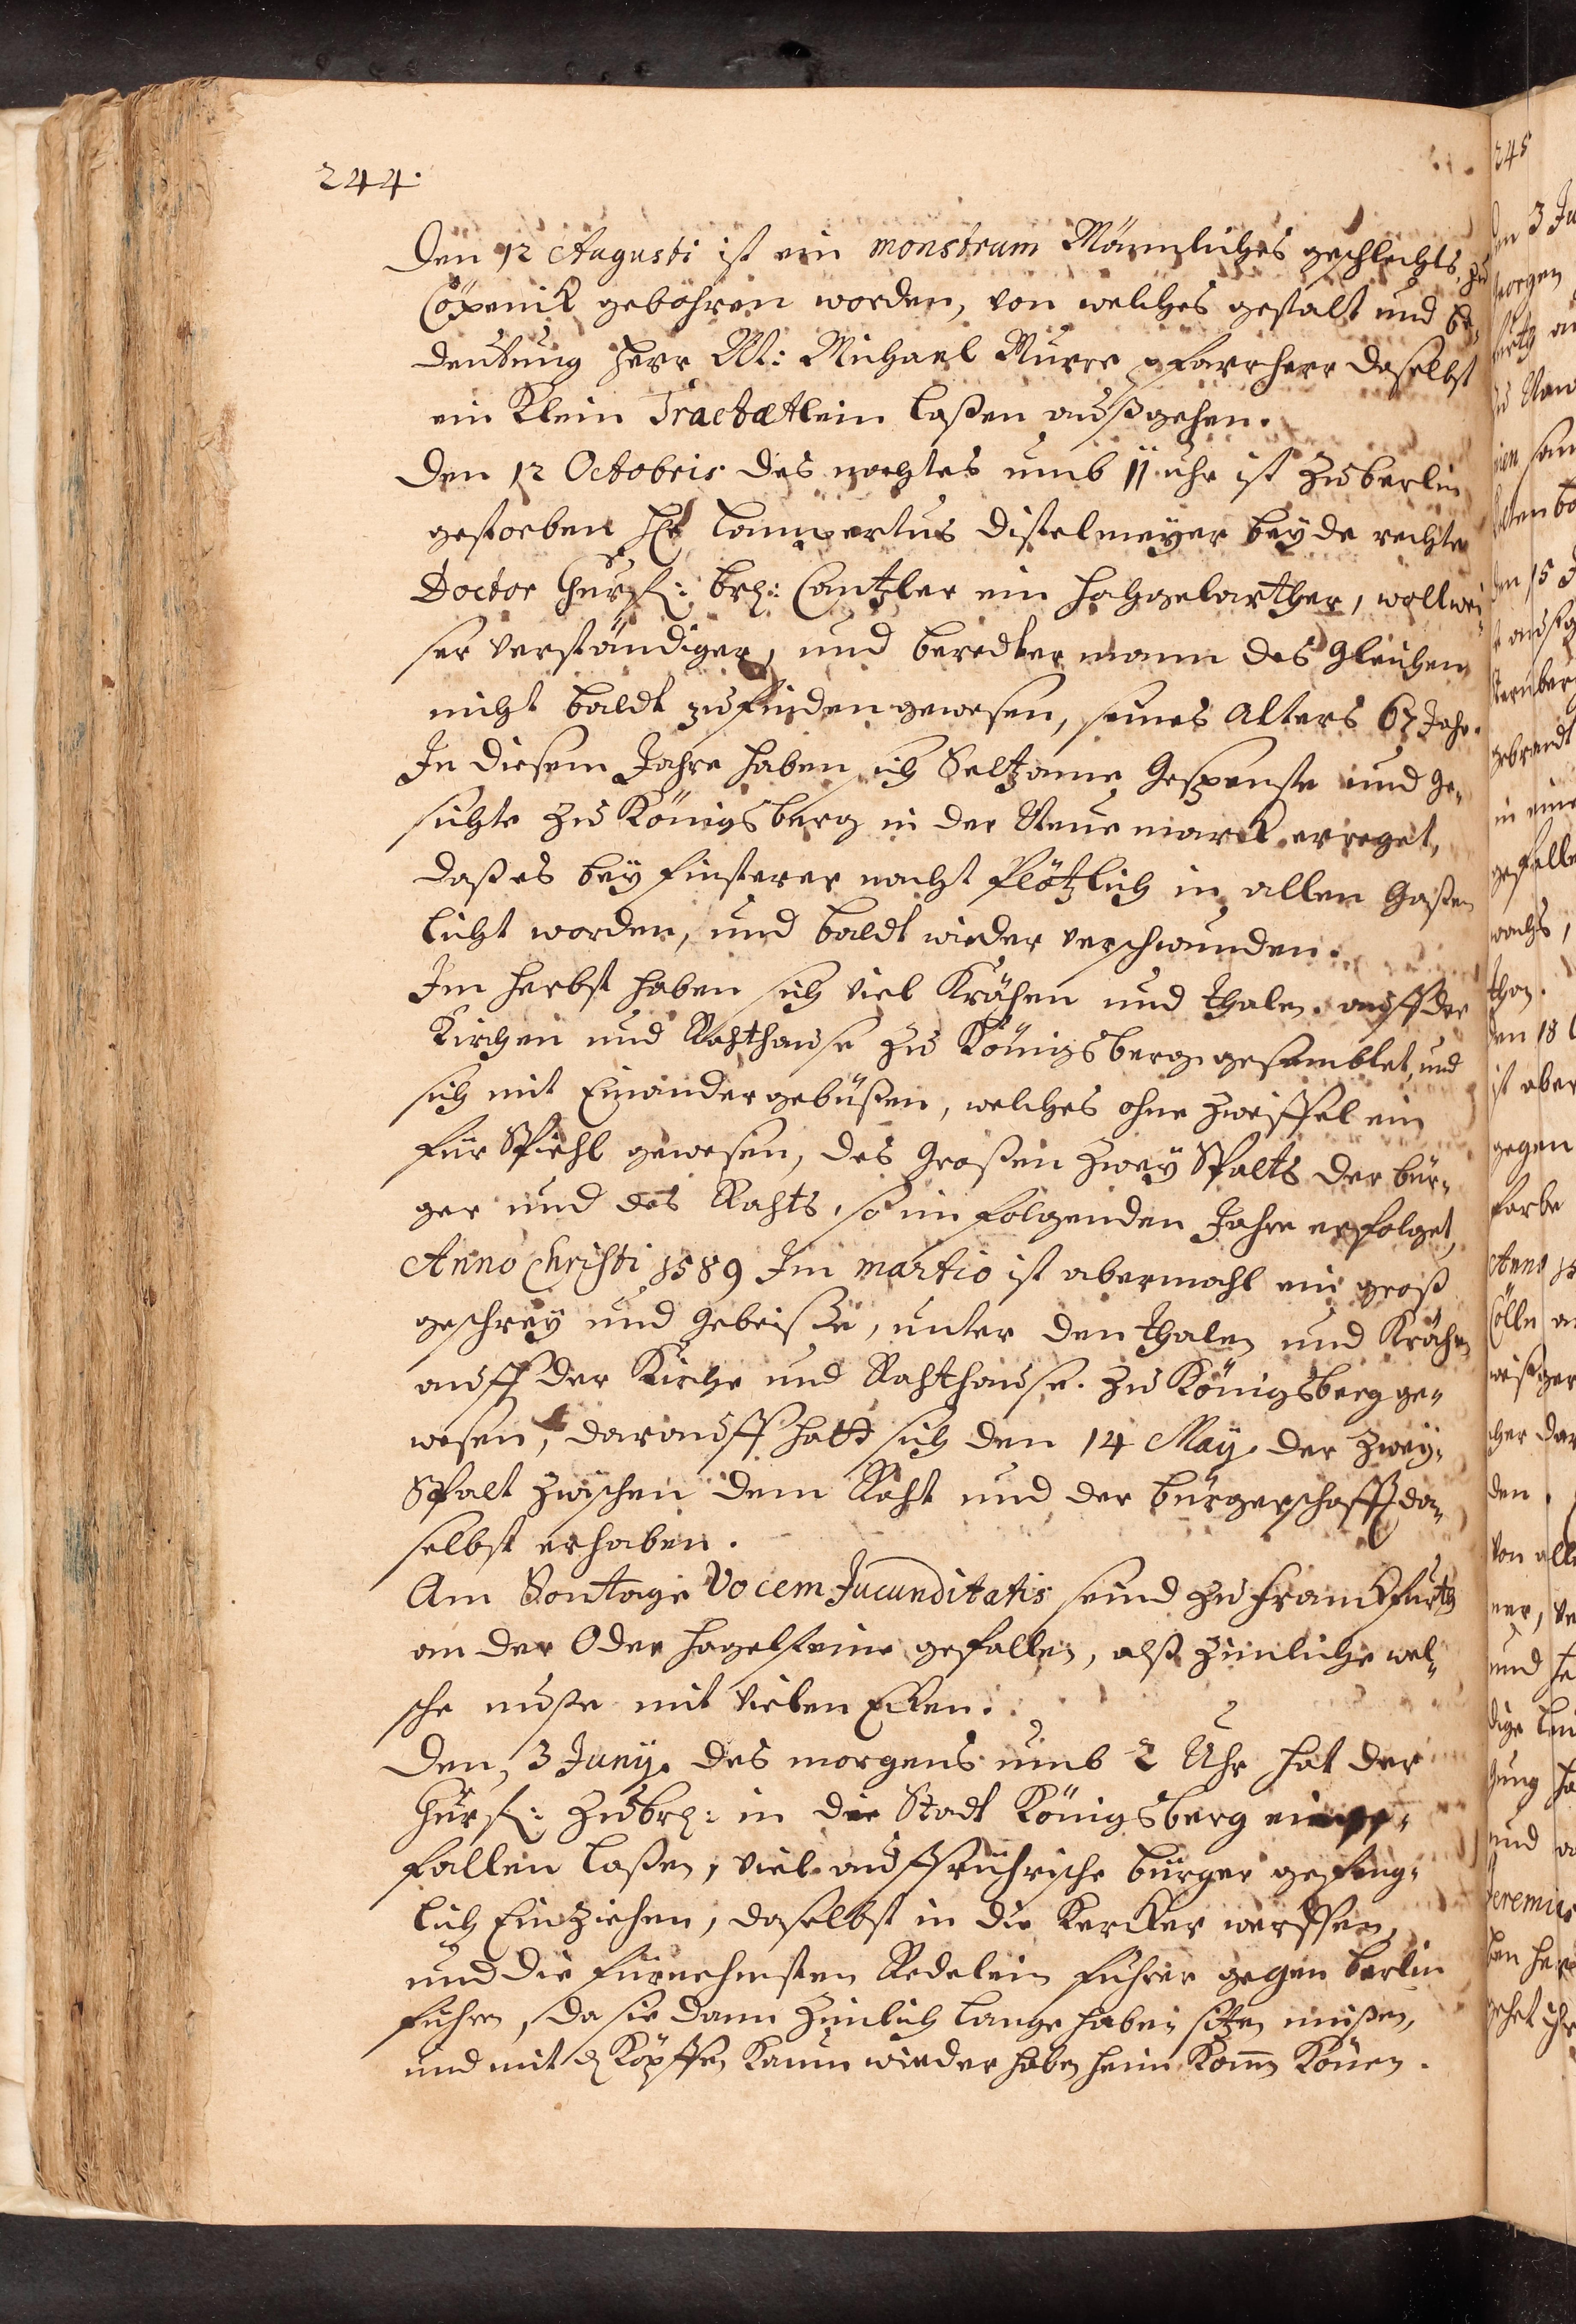 244.
Den 12 Augusti ist ein monstrum Männliches geschlechts, zu
Cöpenik gebohren worden, von welches gestalt und be„
deutung Herr M: Michael Murre pfarrherr daselbst
ein Klein Tractætlein laßen außgehen.
Den 12 Octobris des nachtes umb 11 uhr ist zu berlin
gestorben Hr Lampertus Distelmeyer beyde rechte
Doctor Churf: brh: Cantzler ein hochgelarther, wollwei„
ser verständiger, und beredter mann des gleichen
nicht baldt zu finden gewesen, seines alters 67 Jahr.
In diesem Jahre haben sich Seltzame Gespenste und ge„
sichte zu Königsberg in der Neumarck erreget,
daß es bey finsterer nacht Plötzlich in allen gaßen
licht worden, und baldt wieder verschwunden.
Im herbst haben sich viel Krähen und thalen auff der
Kirchen und Rahthause zu Königsberg gesamblet, und
sich mit Einander gebüßen, welches ohne Zweiffel ein
für Spiehl gewesen, des großen Zwey Spalts der bür„
ger und des Rahts, so im folgenden Jahre erfolget,
Anno Christi 1589 Im martio ist abermahl ein groß
geschrey und gebeiße, unter den thalen und Krähen
auff der Kirche und Rahthause zu Königsberg ge„
wesen, darauff hatt sich den 14 May der Zwey„
Spalt zwischen dem Raht und der bürgerschafft da„
selbst erhaben.
Am Sontage Vocem Jucunditatis seind zu Franckfurth
an der Oder hagelsteine gefallen, alß zimliche wel„
sche nuße mit vielen Ecken.
Den 3 Juny. des morgens umb 2 Uhr hat der
Churf: zu brh: in die Stadt Königsberg einge„
fallen laßen, viel auffrührische bürger gefäng„
lich Einziehen, daselbst in die Kercker werffen,
und die fürnehmsten Redelein führer gegen berlin
führen, da sie dann zimlich lange haben sitzen müßen,
und mit d Köpffen kaum wieder haben heim Komm Könen.